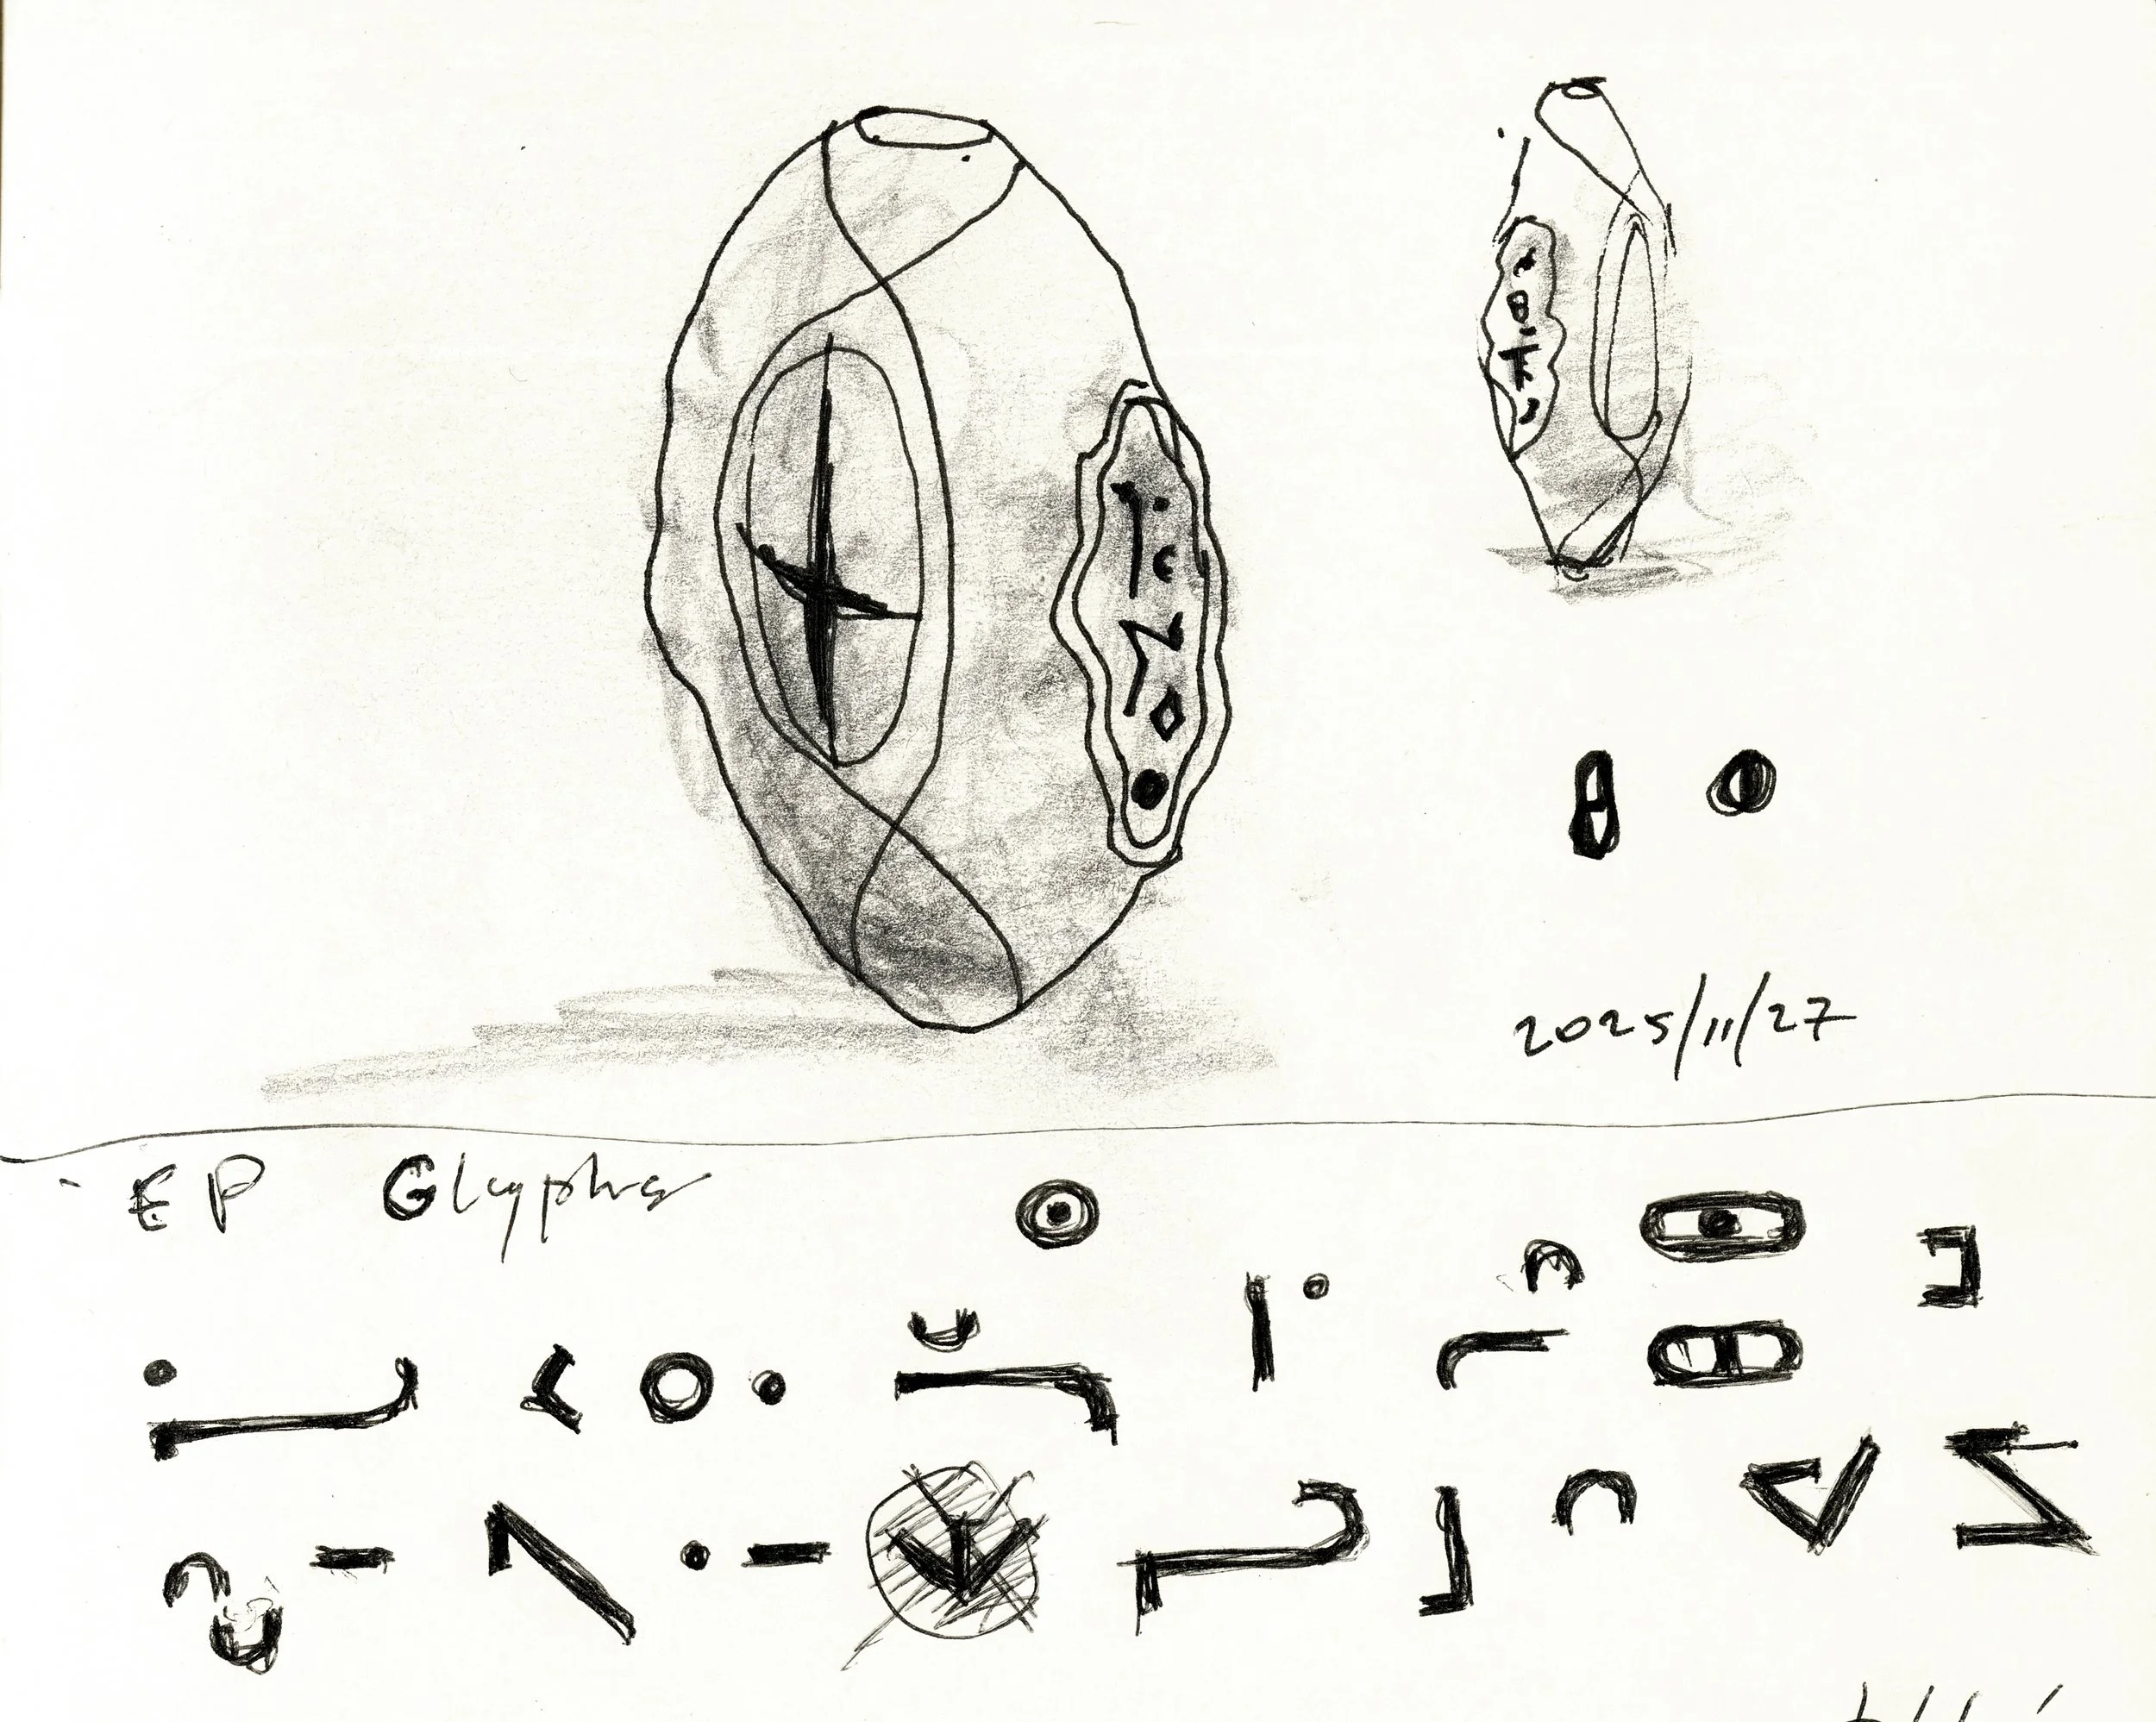 2025/11/27
EP Glyphs